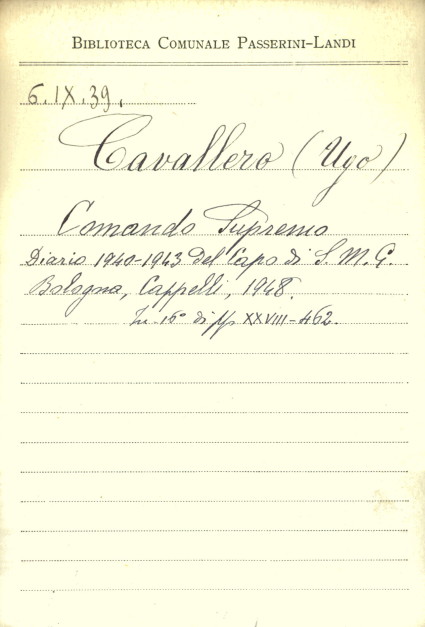 BIBLIOTECA COMUNALE PASSERINI-LANDI
6.IX.39.
Cavallero (Ugo)
Comando Supremo
Diario 1940-1943 del Capo di S. M. G.
Bologna, Cappelli, 1948.
In-16° di pp XXVIII-462.